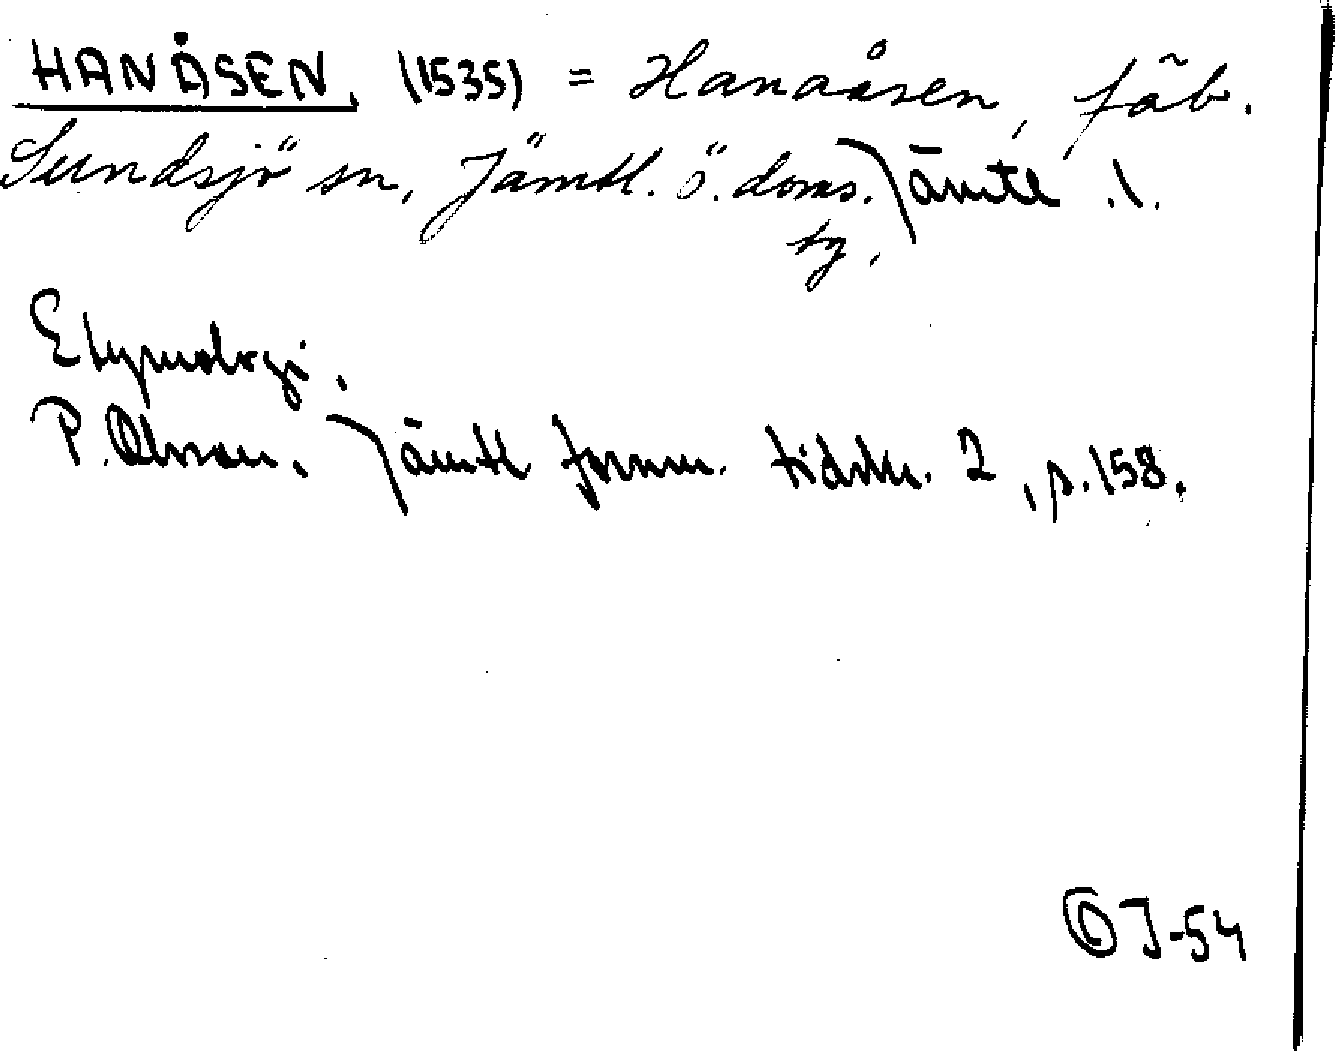 HANÅSEN. (1535) = Hanaåsen, fäb.
Sundsjö sn, Jämtl. ö. doms. Jämtl .l.
sg.
Etymologi.
P. Olsson. Jämtl fornm. tidskr. 2, s. 158.
ÖJ-54